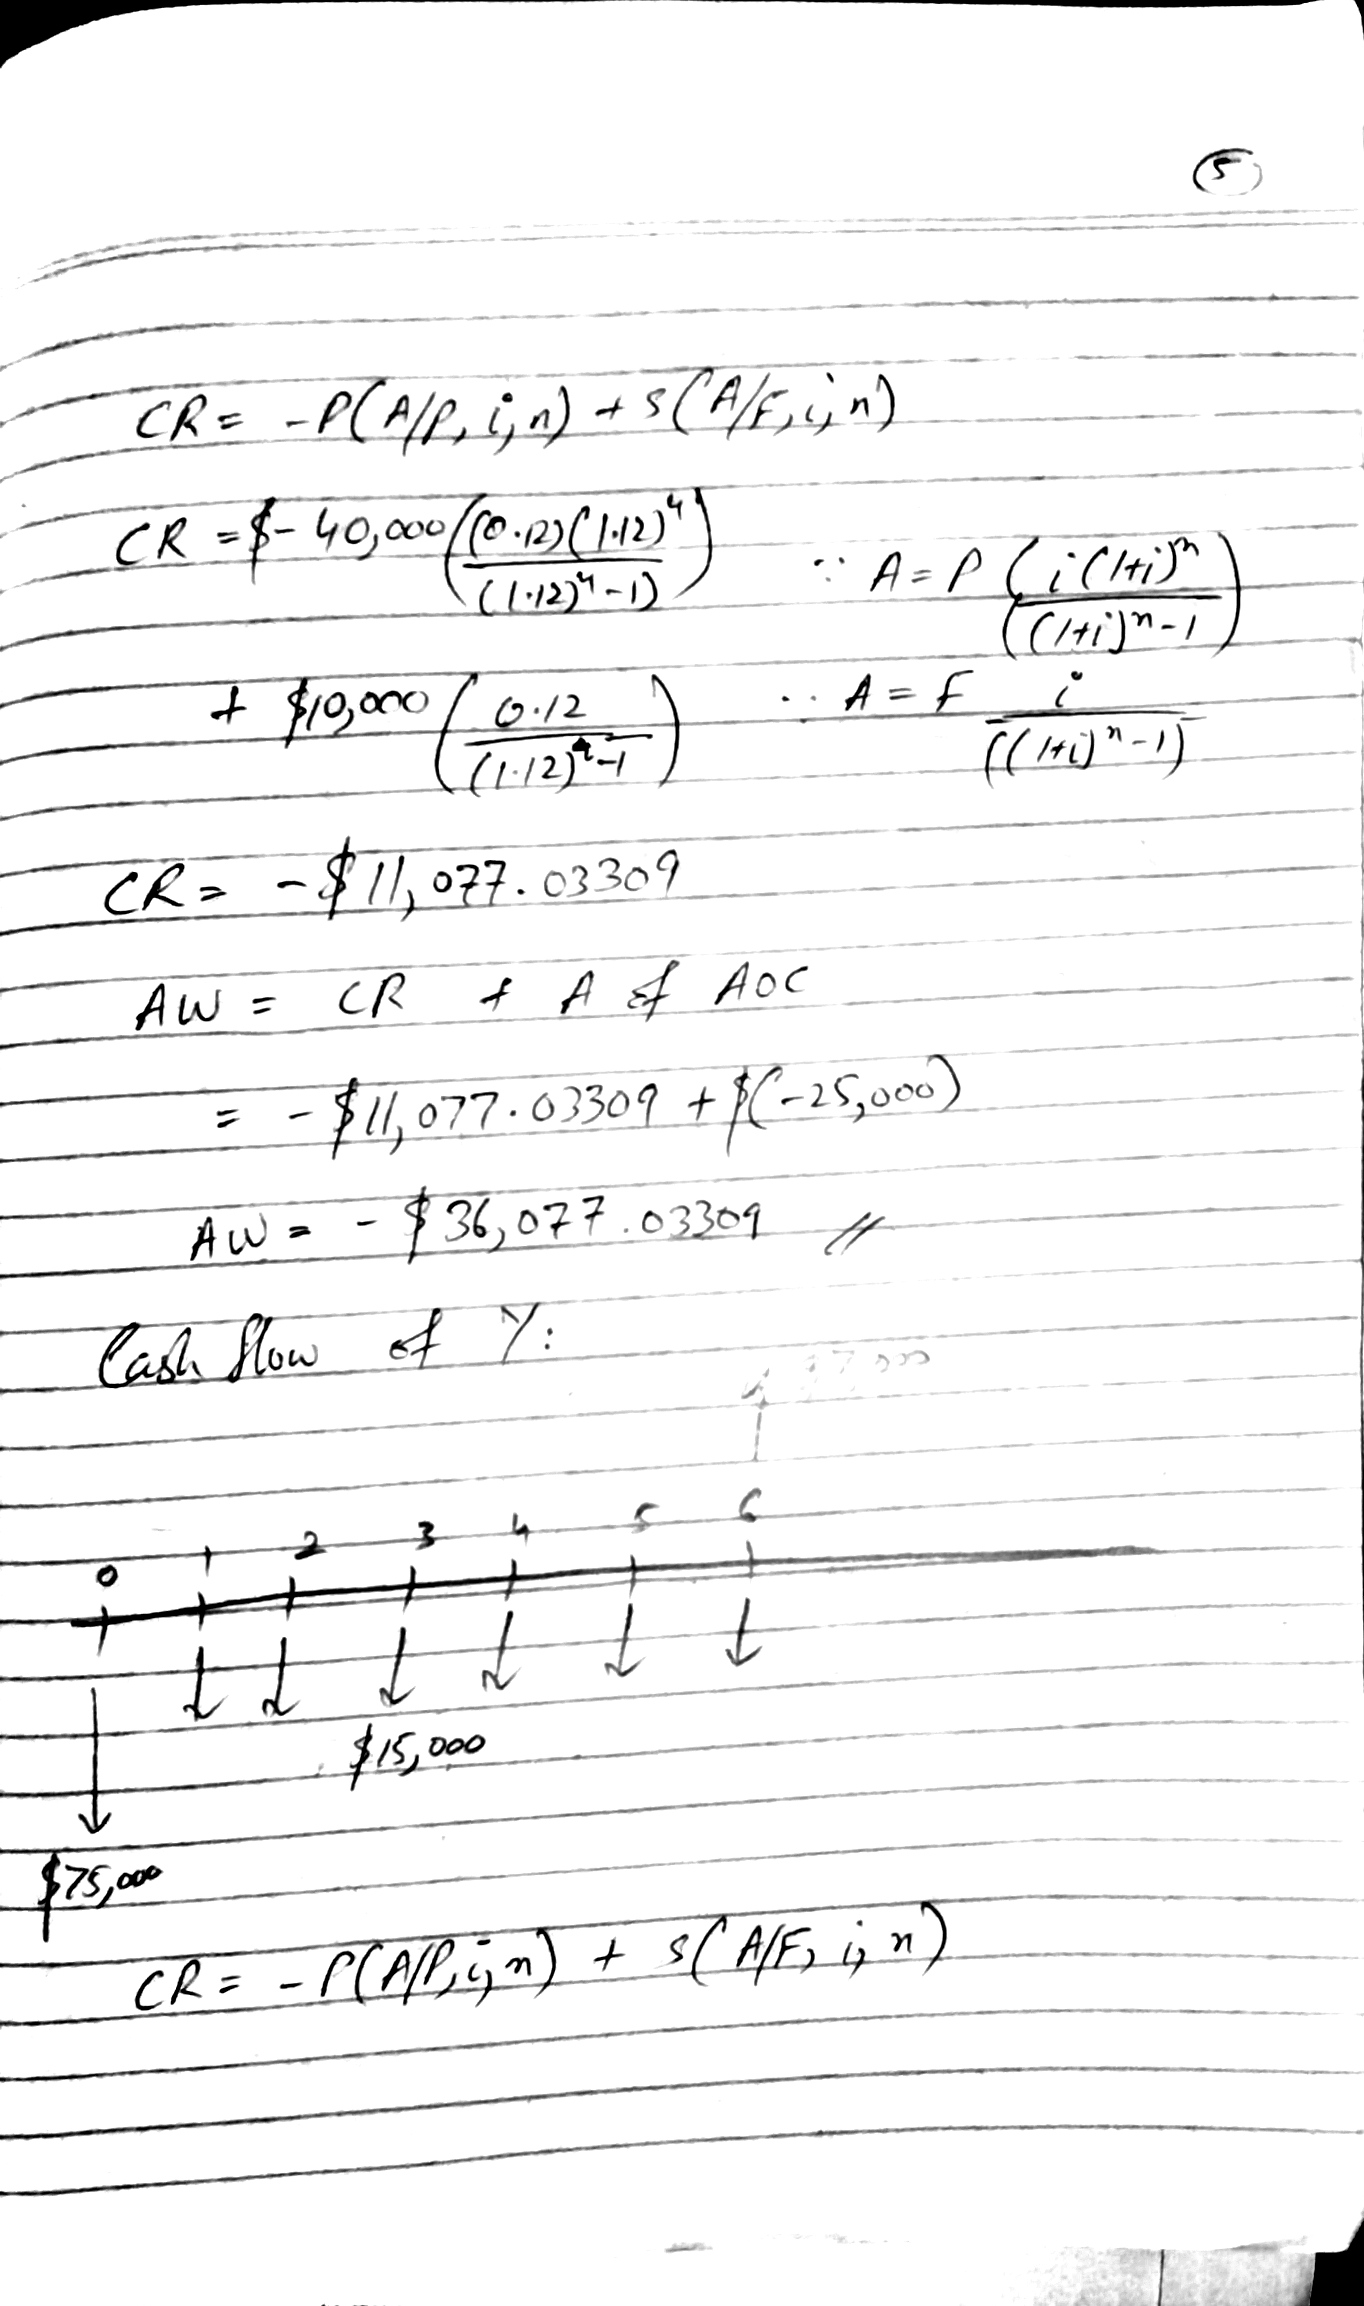 5
CR = -P(A/P, i, n) + S(A/F, i, n)
CR = $-40,000 ((0.12)(1.12)^4 / ((1.12)^4 - 1)) ∵ A = P (i(1+i)^n / ((1+i)^n - 1))
+ $10,000 (0.12 / ((1.12)^4 - 1)) ∵ A = F i / ((1+i)^n - 1)
CR = -$11,077.03309
AW = CR + A of AOC
= -$11,077.03309 + $(-25,000)
AW = -$36,077.03309 //
Cash flow of Y:
0 1 2 3 4 5 6
$15,000
$75,000
CR = -P(A/P, i, n) + S(A/F, i, n)